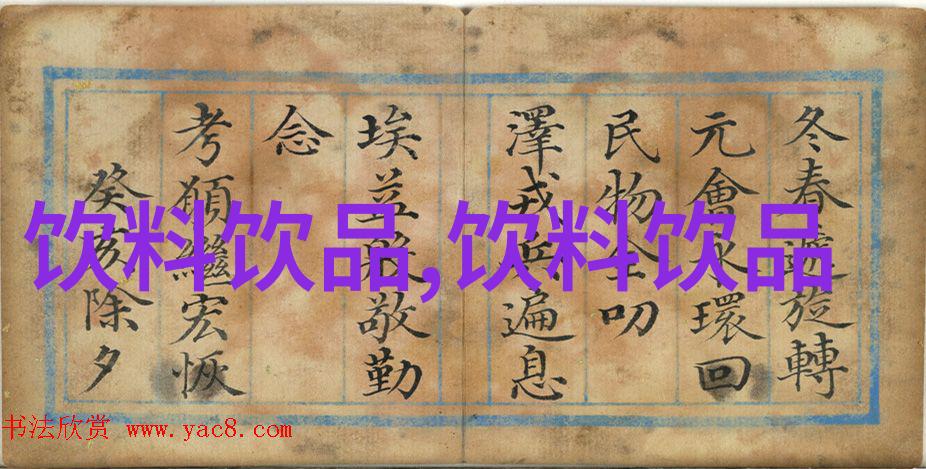 冬春遞旋轉
元會環回
民物全叨
澤戎兵遍息
埃益殷敬勤
念
考願繼宏恢
癸亥除夕
饮料饮品,饮料饮品
书法欣赏 www.yac8.com